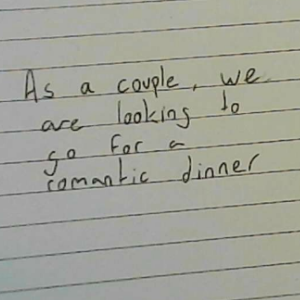 As a couple, we
are looking to
go for a
romantic dinner